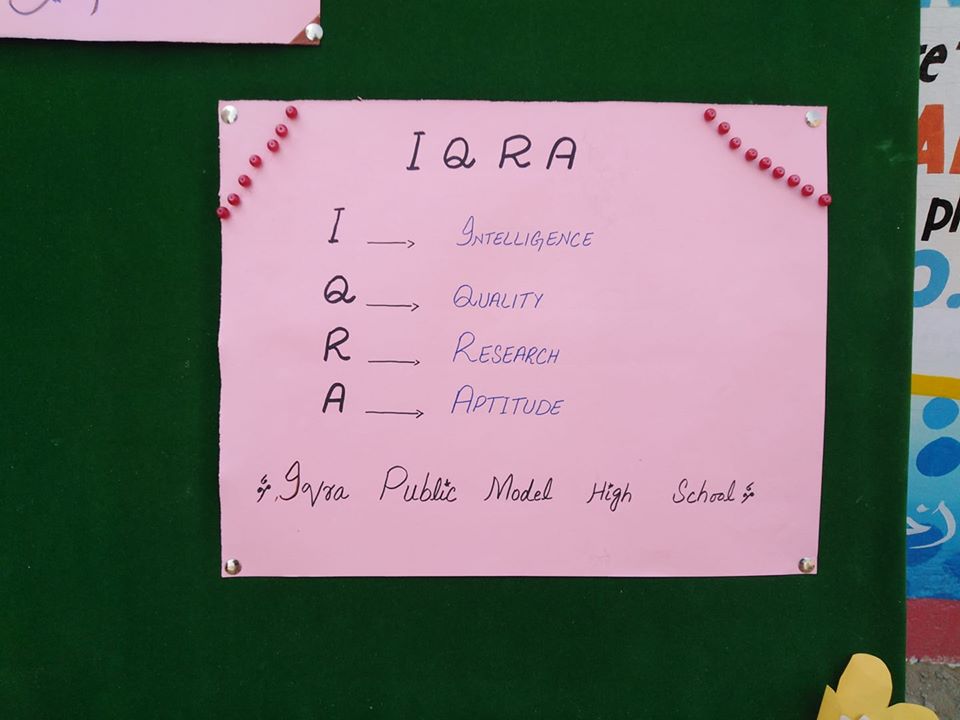 IQRA
I → INTELLIGENCE
Q → QUALITY
R → RESEARCH
A → APTITUDE
Iqra Public Model High School